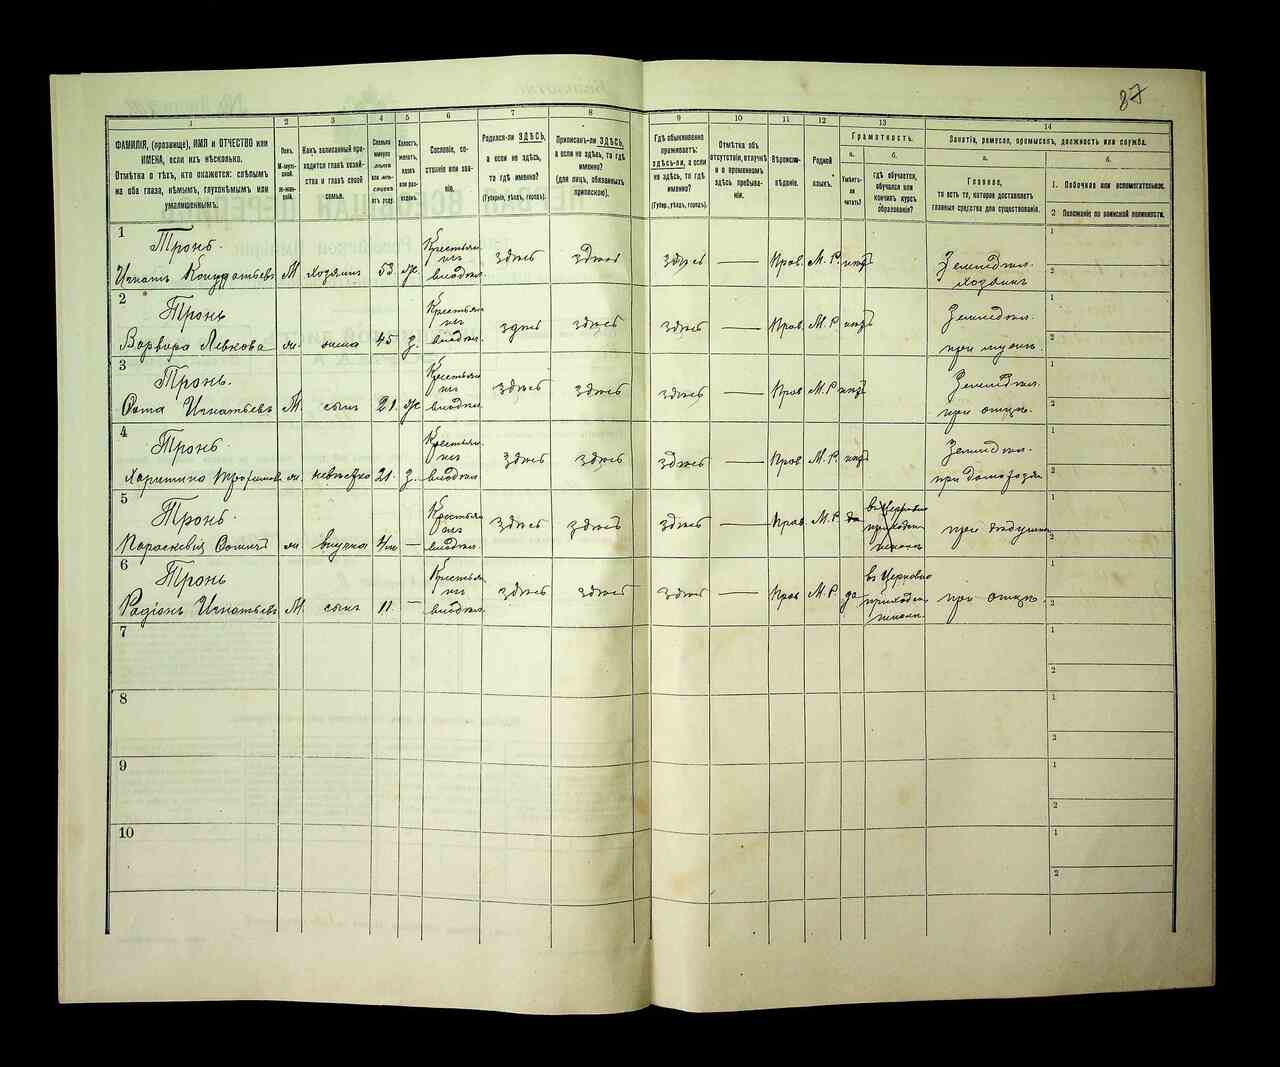 87
1 2 3 4 5 6 7 8 9 10 11 12 13 14
ФАМИЛІЯ, (прозвище), ИМЯ и ОТЧЕСТВО или
ИМЕНА, если ихъ нѣсколько.
Отмѣтка о тѣхъ, кто окажется: слѣпымъ
на оба глаза, нѣмымъ, глухонѣмымъ или
умалишеннымъ.
Полъ.
М-муж-
ской.
ж-жен-
скій.
Какъ записанный при-
ходится главѣ хозяй-
ства и главѣ своей
семьи.
Сколько
минуло
лѣтъ
или мѣ-
сяцевъ
отъ роду.
Холостъ,
женатъ,
вдовъ
или раз-
веденъ.
Сословіе, со-
стояніе или зва-
ніе.
Родился-ли ЗДѢСЬ,
а если не здѣсь,
то гдѣ именно?
(Губернія, уѣздъ, городъ).
Приписанъ-ли ЗДѢСЬ,
а если не здѣсь, то гдѣ
именно?
(для лицъ, обязанныхъ
припискою).
Гдѣ обыкновенно
проживаетъ:
здѣсь-ли, а если
не здѣсь, то гдѣ
именно?
(Губер., уѣздъ, городъ).
Отмѣтка объ
отсутствіи, отлучкѣ
и о временномъ
здѣсь пребыва-
ніи.
Вѣроиспо-
вѣданіе.
Родной
языкъ.
Грамотность.
а.
Умѣетъ-
ли
читать?
б.
гдѣ обучается,
обучался или
кончилъ курсъ
образованія?
Занятіе, ремесло, промыселъ, должность или служба.
а.
Главное,
то есть то, которое доставляетъ
главныя средства для существованія.
б.
1. Побочное или вспомогательное.
2 Положеніе по воинской повинности.
1
Тронь.
Игнатъ Кондратьевъ М хозяинъ 53 ж. Крестьян. изъ владѣл. здѣсь здѣсь здѣсь — Прав. М. Р. нѣтъ Земледѣл. хозяинъ
1
2
2
Тронь
Варвара Левкова ж. жена 45 з. Крестьян. изъ владѣл. здѣсь здѣсь здѣсь — Прав. М. Р. нѣтъ Земледѣл. при мужѣ.
1
2
3
Тронь.
Фома Игнатьевъ М. сынъ 21. ж. Крестьян. изъ владѣл. здѣсь здѣсь здѣсь — Прав. М. Р. нѣтъ Земледѣл. при отцѣ.
1
2
4
Тронь.
Харитина Трофимова ж. невѣстка 21. з. Крестьян. изъ владѣл. здѣсь здѣсь здѣсь — Прав. М. Р. нѣтъ Земледѣл.
1
2
5
Тронь.
Параскевія ж внучка — Крестьян. изъ владѣл. здѣсь здѣсь здѣсь — Прав. М. Р. да въ Церковно приходск. школѣ при дѣдушкѣ
1
2
6
Тронь
Радіонъ Игнатьевъ М. сынъ 11. — Крестьян. изъ владѣл. здѣсь здѣсь здѣсь — Прав М. Р. да въ Церковно приходск. школѣ. при отцѣ.
1
2
7
1
2
8
1
2
9
1
2
10
1
2